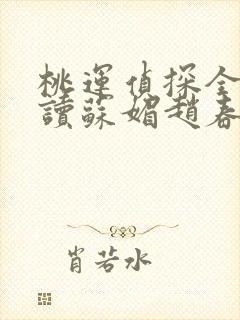 桃運偵探全
讀蘇媚趙春
肖若水